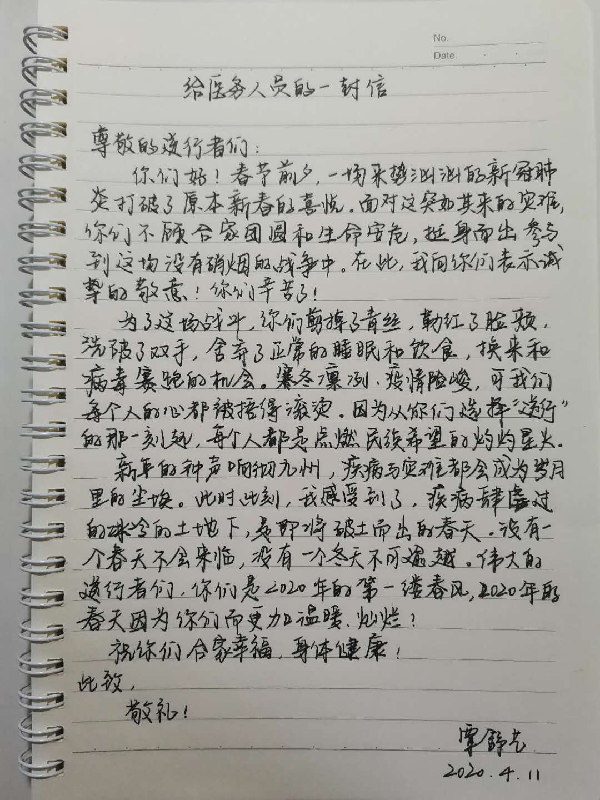 No.
Date
给医务人员的一封信
尊敬的逆行者们：
你们好！春节前夕，一场来势汹汹的新冠肺
炎打破了原本新春的喜悦。面对这突如其来的灾难，
你们不顾合家团圆和生命安危，挺身而出参与
到这场没有硝烟的战争中。在此，我向你们表示诚
挚的敬意！你们辛苦了！
为了这场战斗，你们剪掉了青丝，勒红了脸颊，
洗破了双手，舍弃了正常的睡眠和饮食，换来和
病毒赛跑的机会。寒冬凛冽，疫情险峻，可我们
每个人的心都被捂得滚烫。因为从你们选择“逆行”
的那一刻起，每个人都是点燃民族希望的灼灼星火。
新年的钟声响彻九州，疾病与灾难都会成为岁月
里的尘埃。此时此刻，我感受到了，疾病肆虐过
的冰冷的土地下，是即将破土而出的春天。没有一
个春天不会来临，没有一个冬天不可逾越。伟大的
逆行者们，你们是2020年的第一缕春风，2020年的
春天因为你们而更加温暖、灿烂！
祝你们合家幸福，身体健康！
此致，
敬礼！
覃
2020.4.11